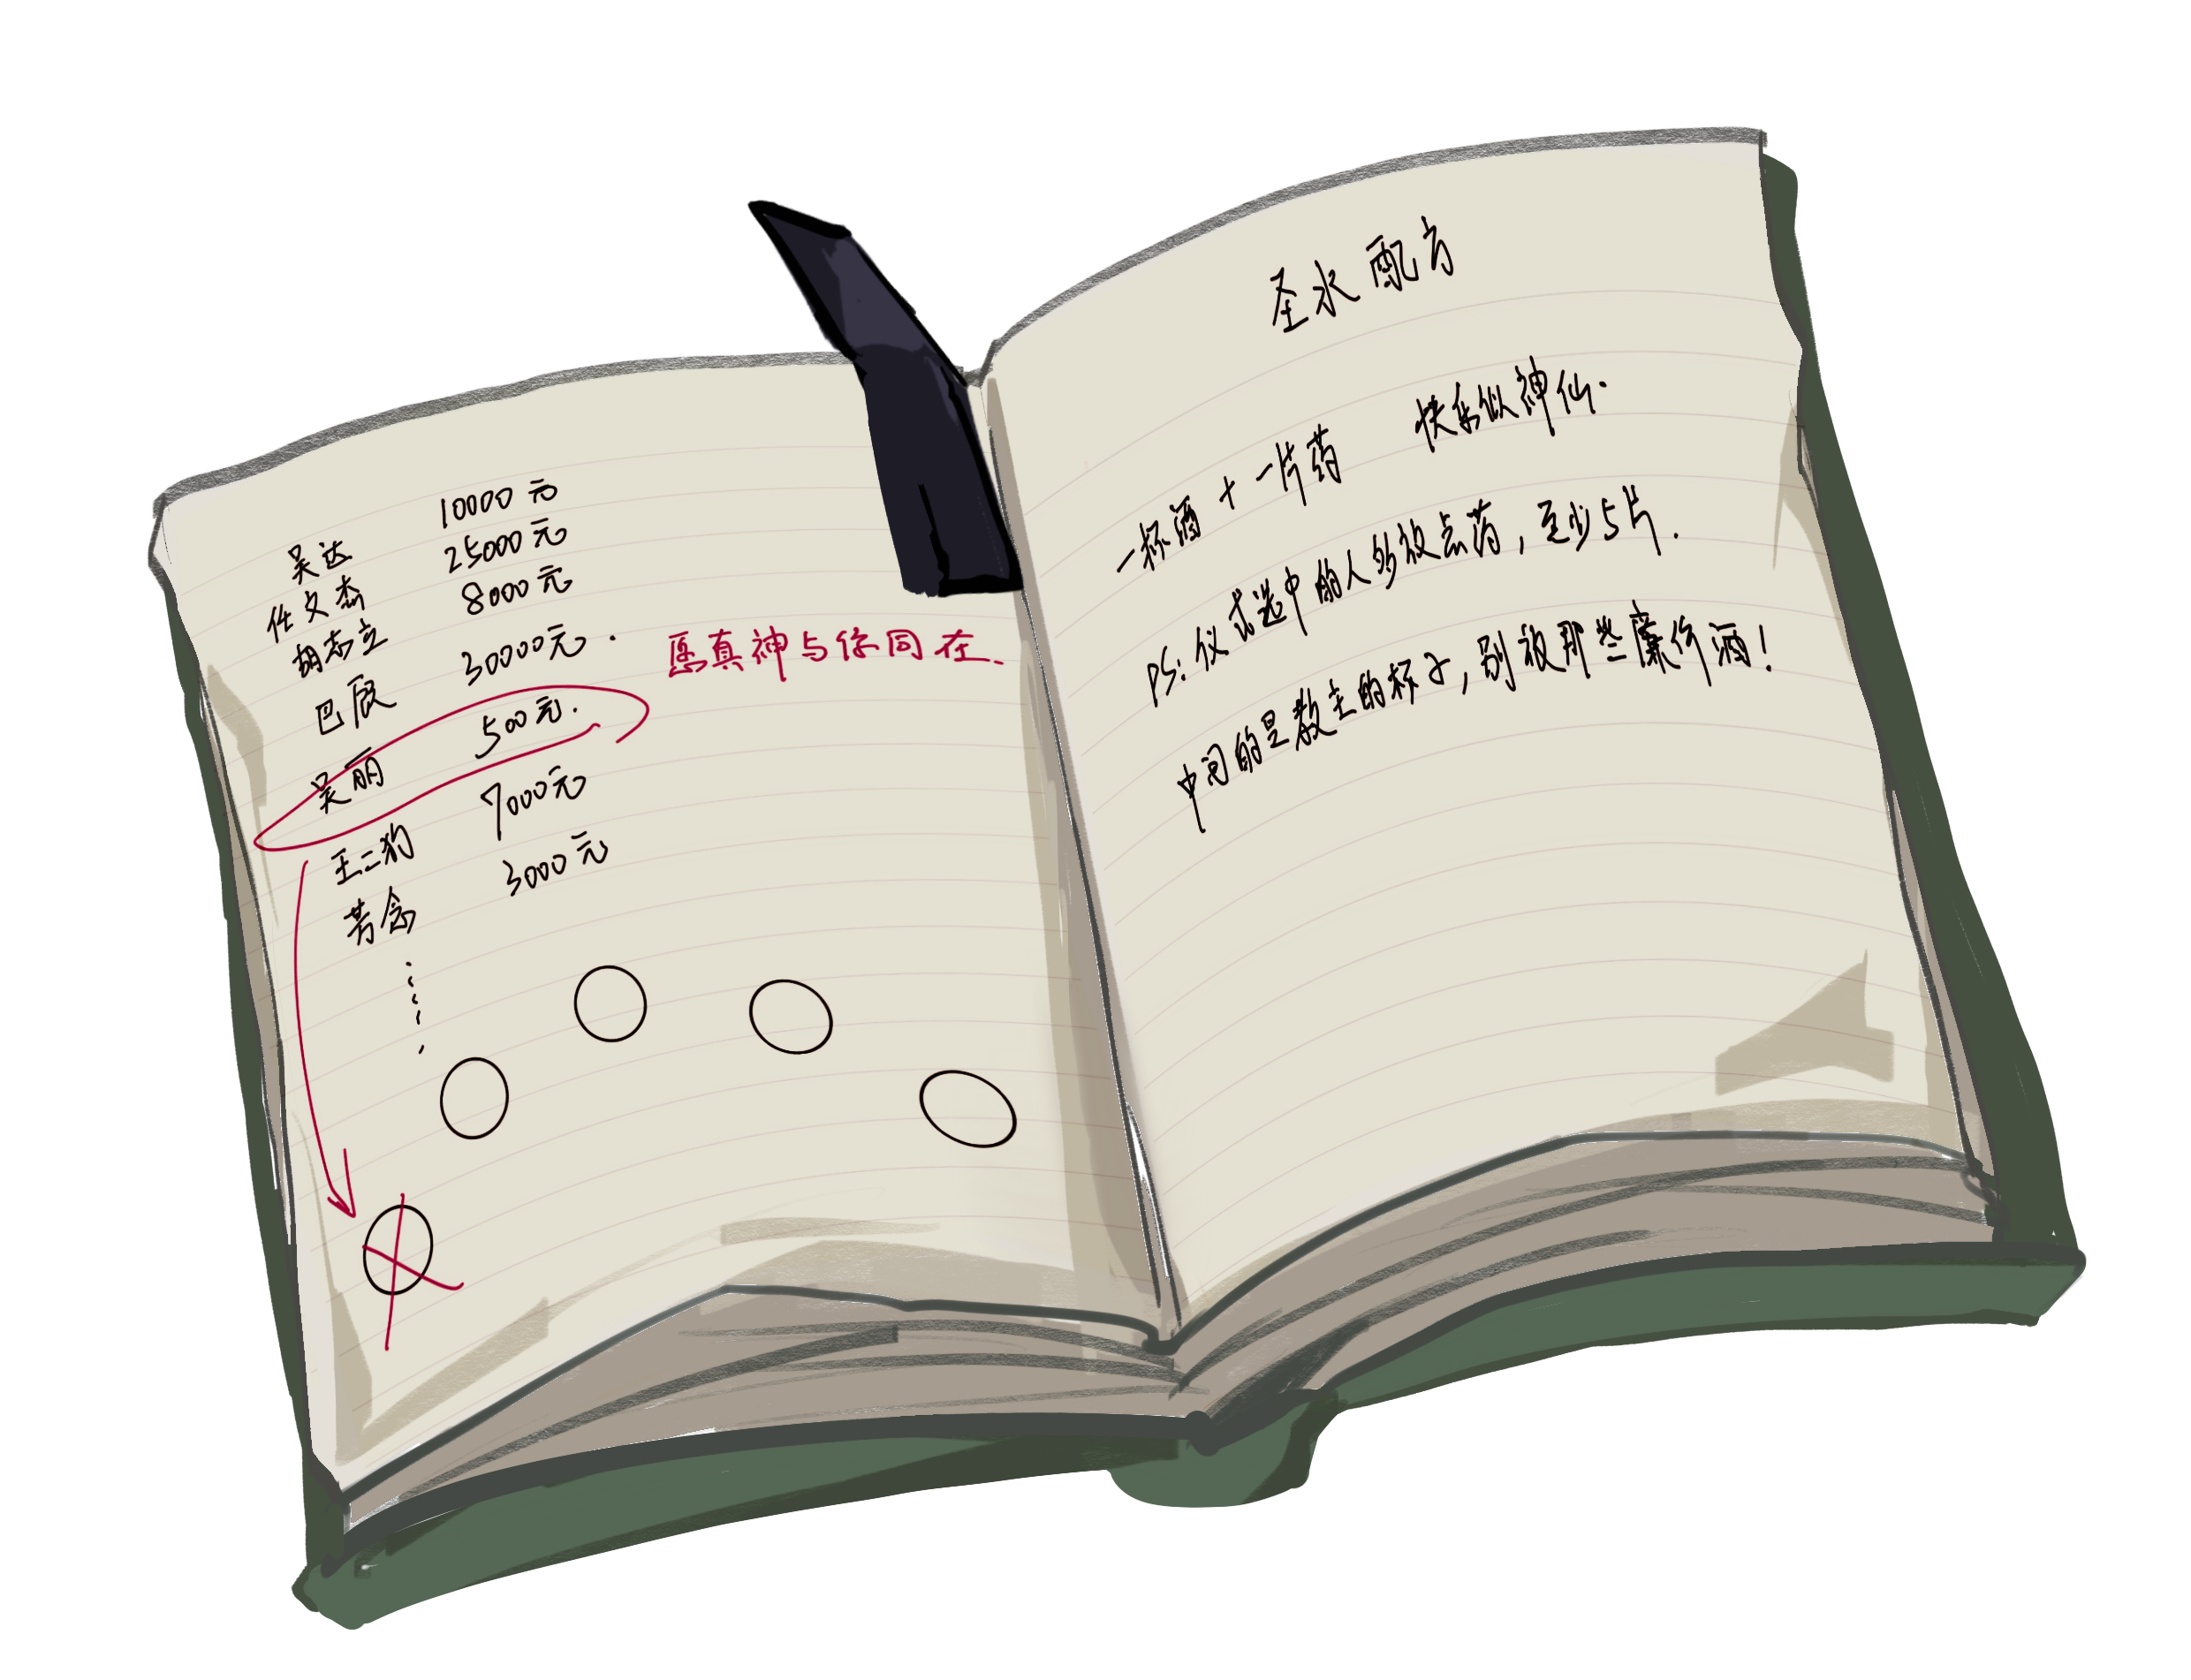 吴达 10000元
任文杰 25000元
胡志立 8000元
巴辰 30000元.
愿真神与你同在.
吴丽 500元.
王二狗 7000元
芳念 3000元
……
圣水配方
一杯酒+一片药 快乐似神仙.
PS:仪式选中的人多放点药,至少5片.
中间的是教主的杯子,别放那些廉价酒!